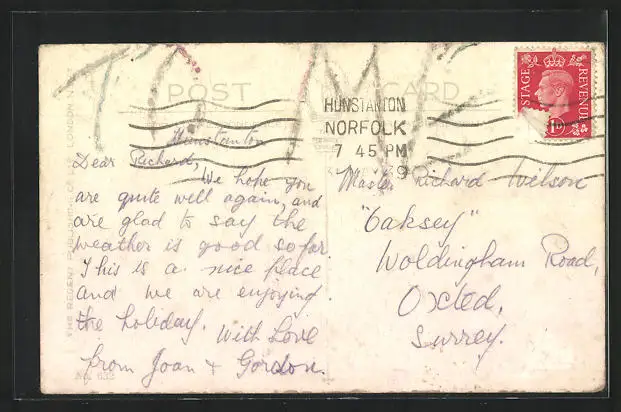 POST CARD
HUNSTANTON
NORFOLK
7 45 PM
POSTAGE REVENUE
1D
Hunstanton
Dear Richard,
We hope you
are quite well again, and
are glad to say the
weather is good so far.
This is a nice place
and we are enjoying
the holiday. With Love
from Joan + Gordon.
Master Richard Wilson
"Oaksey"
Woldingham Road,
Oxted,
Surrey.
THE REGENT PUBLISHING CO LTD LONDON N
No. 632